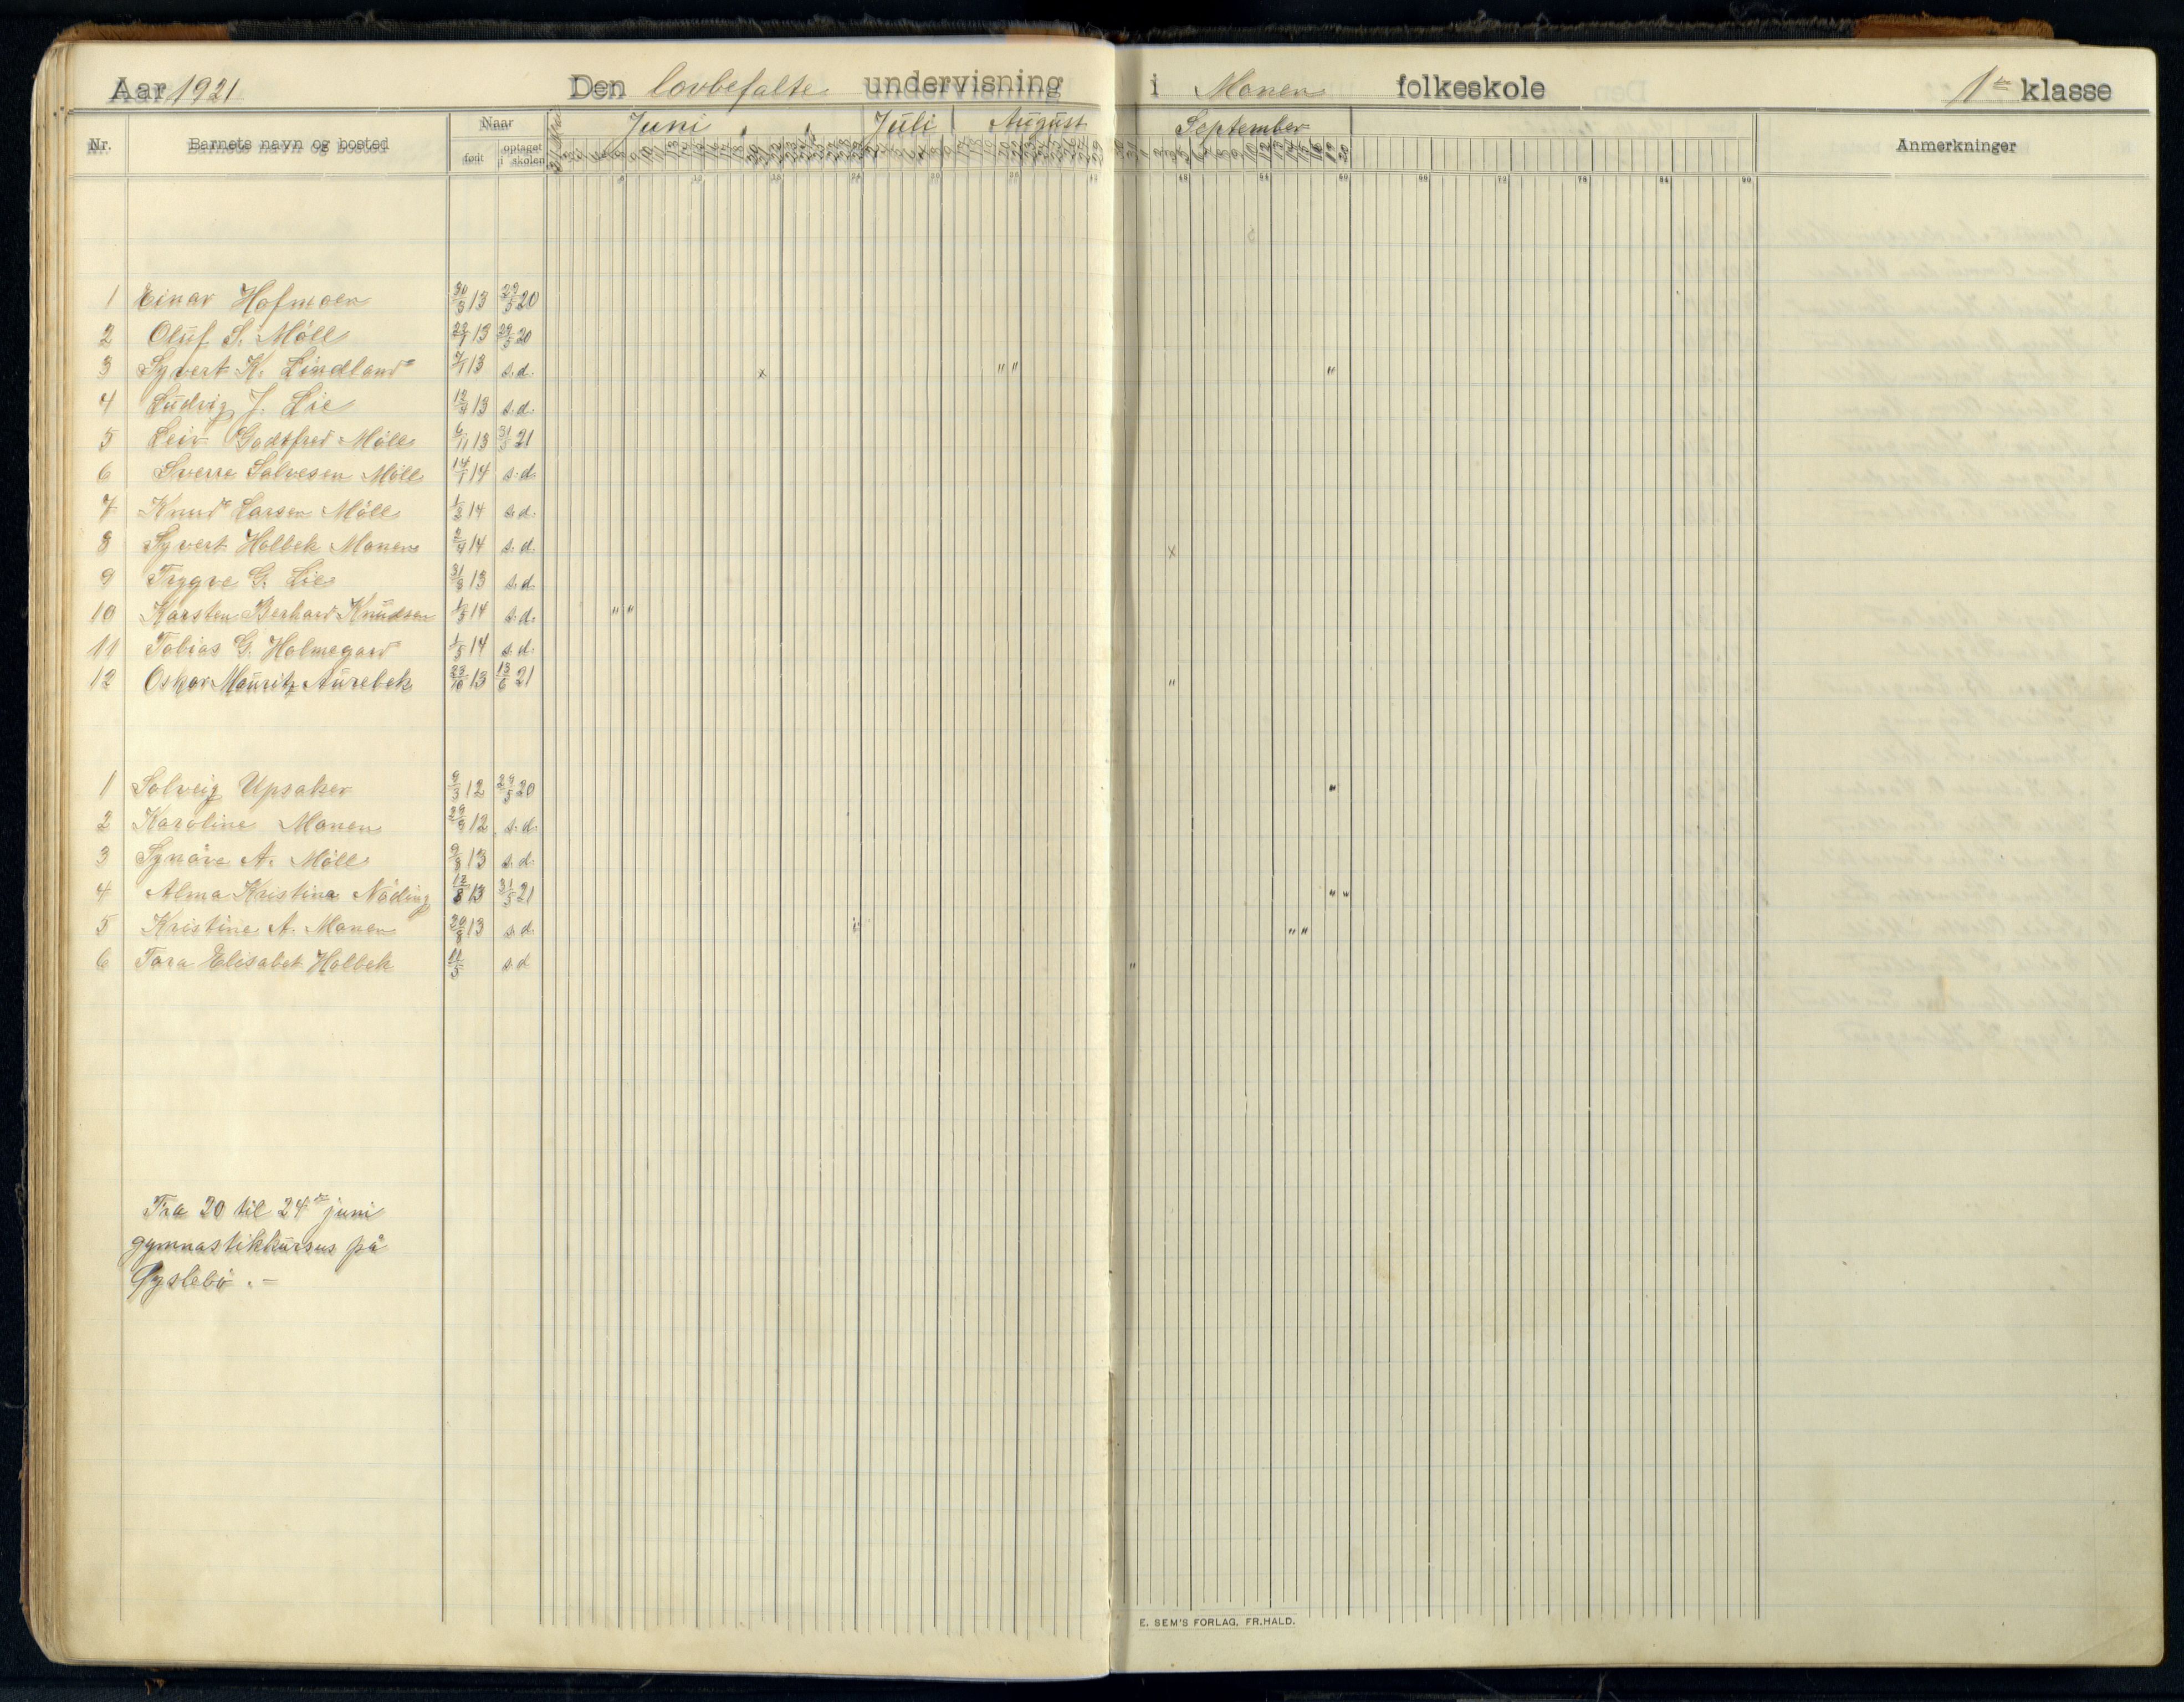 Aar 1921 Den lovbefalte undervisning i Monen folkeskole 1ste klasse
Nr. Barnets navn og bosted Naar Juni Juli August September Anmerkninger
født optaget i skolen
6 12 18 24 30 36 42 48 54 60 66 72 78 84 90
1 Einar Hofmoen 30/3 13 29/5 20
2 Oluf S. Möll 13 29/5 20
3 Syvert K. Lindland 7/1 13 s.d. x " " "
4 Ludvig J. Lie 13 s.d.
5 Leiv Godtfred Möll 6/11 13 31/5 21
6 Sverre Salvesen Möll 14/1 14 s.d.
7 Knud Larsen Möll 14 s.d.
8 Syvert Holbek Monen 2/4 14 s.d. x
9 Trygve G. Lie 31/8 13 s.d.
10 Karsten Berhard Knudsen 1/5 14 s.d. " "
11 Tobias G. Holmegard 1/5 14 s.d.
12 Oskar Mauritz Aurebek 23/10 13 13/6 21 "
1 Solveig Upsaker 9/3 12 29/5 20 "
2 Karoline Monen 29/9 12 s.d.
3 Synöve A. Möll 13 s.d.
4 Alma Kristina Nöding 12/8 13 31/5 21 " "
5 Kristine A. Monen 13 s.d. " " "
6 Tora Elisabet Holbek 11/5 s.d "
Fra 20 til 24de juni
gymnastikkursus på
Øyslebö . –
E. SEM'S FORLAG, FR.HALD.